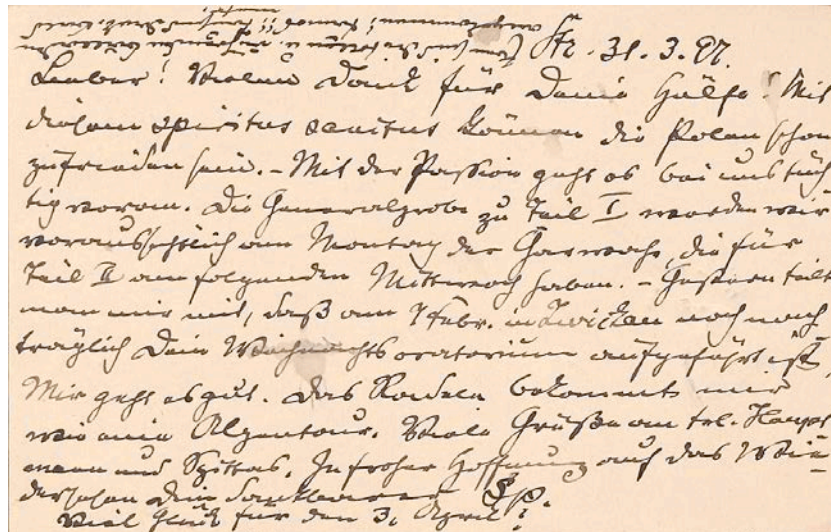 Str. 31. 3. 97.
Lieber! Vielen Dank für Deine Hülfe! Mit
diesem spiritus sanctus können die Polen schon
zufrieden sein. – Mit der Passion geht es bei uns tüch
tig voran. Die Generalprobe zu Teil I werden wir
voraussichtlich am Montag der Carwoche, die für
Teil II am folgenden Mittwoch haben. – Gestern teilt
man mir mit, daß am 7 Febr. in Zwickau noch nach
träglich Dein Weihnachtsoratorium aufgeführt ist.
Mir geht es gut. Das Radeln bekommt mir
wie eine Alpentour. Viele Grüße an frl.
mann und Spittas. In froher Hoffnung auf das Wie-
dersehen Dein dankbarer Sp.
Viel Glück für den 3. April!